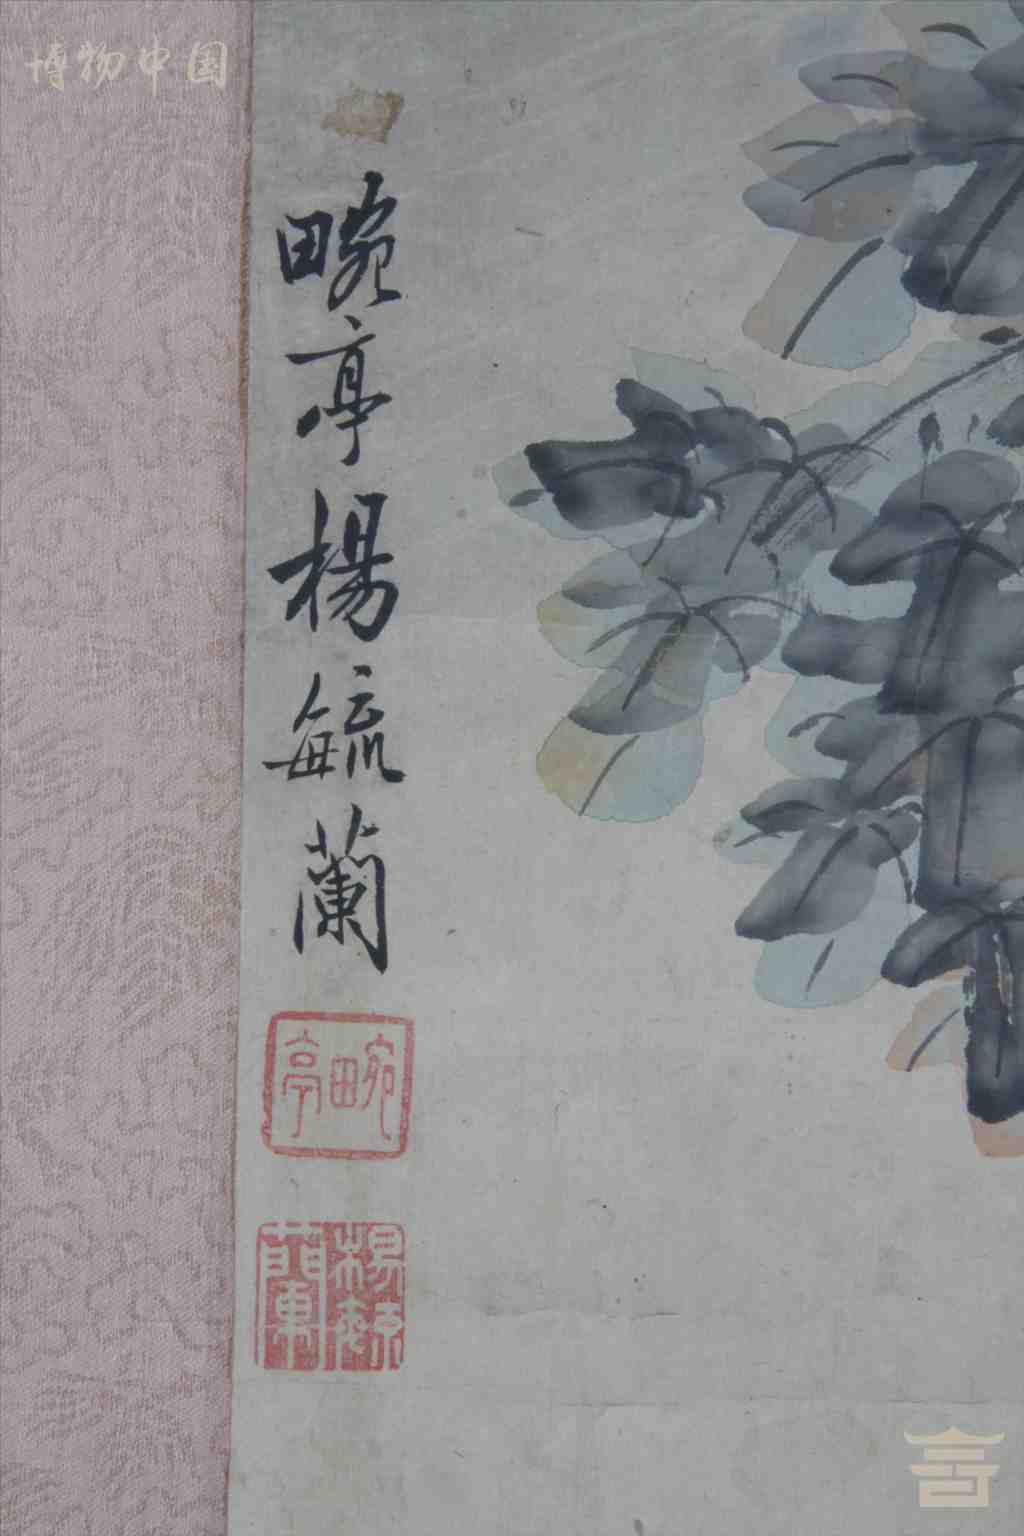 博物中国
畹亭楊毓蘭
畹亭
楊毓蘭